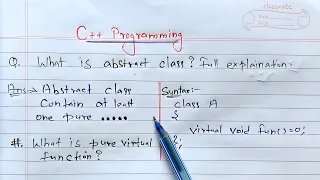 C++ Programming
Q. What is abstract class? Full explaination:-
Ans:→ Abstract class
contain at least
one pure .....
#. What is pure virtual
function?
Syntax:-
class A
{
virtual void func()=0;
};